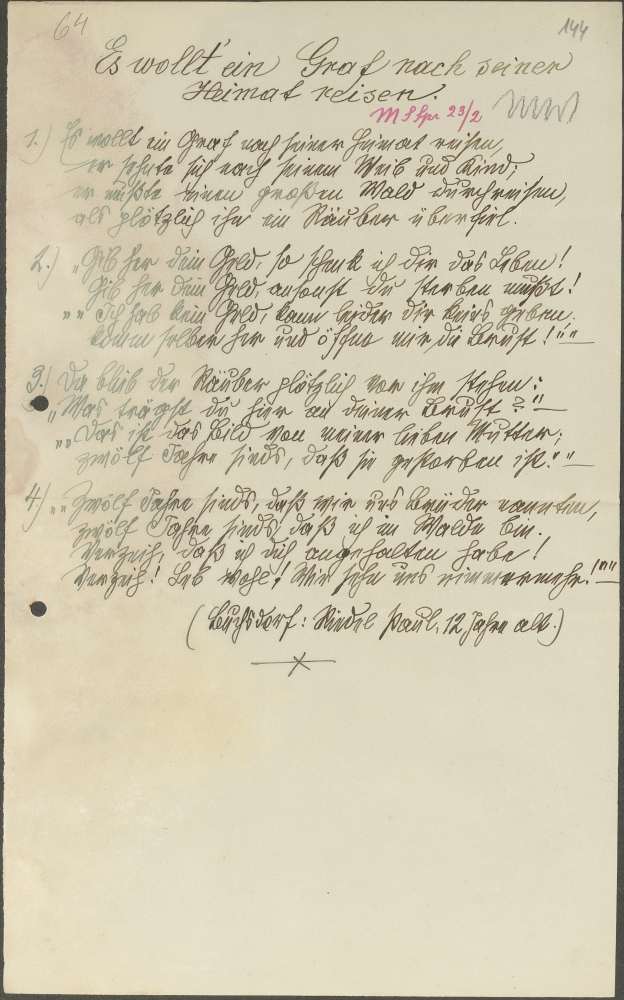 64
144
Es wollt' ein Graf nach seiner
Heimat reisen.
23/2
1.) Es wollt ein Graf nach seiner Heimat reisen,
er sehnte sich nach seinem Weib und Kind;
er mußte einen großen Wald durchreisen,
als plötzlich ihn ein Räuber überfiel.
2.) „Gib her dein Geld, so schenk ich dir das Leben!
Gib her dein Geld, ansonst du sterben mußt!
„„Ich hab kein Geld, kann leider dir keins geben.
Komm selber her und öffne mir die Brust!““
3.) Da blieb der Räuber plötzlich vor ihm stehen:
„Was trägst du hier an deiner Brust?“
„„Das ist das Bild von meiner lieben Mutter;
zwölf Jahre sinds, daß sie gestorben ist.““
4.) „„Zwölf Jahre sinds, daß wir uns Brüder nannten,
zwölf Jahre sinds, daß ich im Walde bin.
Verzeih, daß ich dich angehalten habe!
Verzeih! Leb wohl! Wir sehn uns nimmermehr!““
( : Riedel Paul, 12 Jahre alt.)